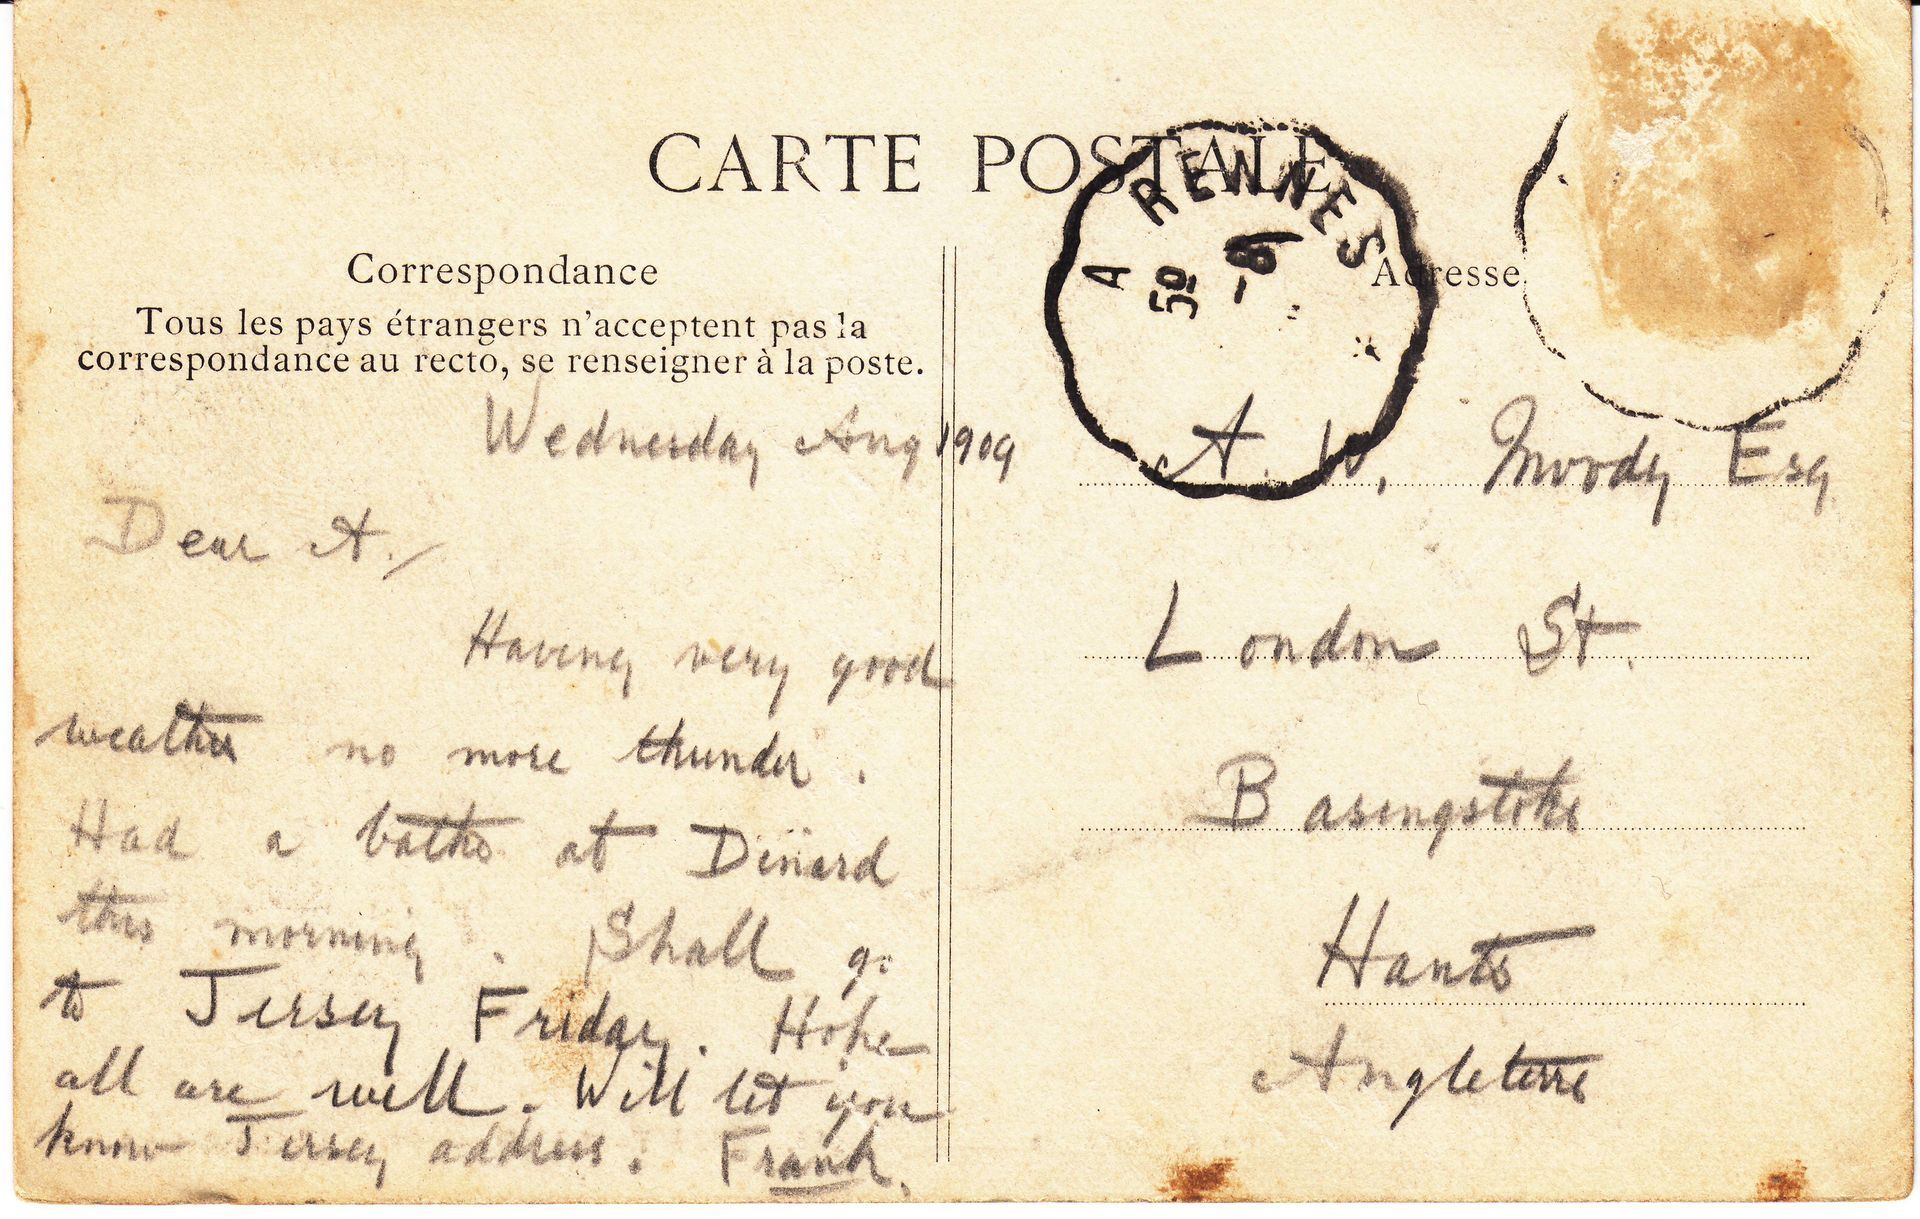 CARTE POSTALE
Correspondance
Tous les pays étrangers n'acceptent pas la
correspondance au recto, se renseigner à la poste.
Wednesday Aug 1909
Dear A.
Having very good
weather no more thunder.
Had a bathe at Dinard
this morning. Shall go
to Jersey Friday. Hope
all are well. Will let you
know Jersey address. Frank.
A RENNES
50
-8
Adresse
A. W. Moody Esq
London St.
Basingstoke
Hants
Angleterre